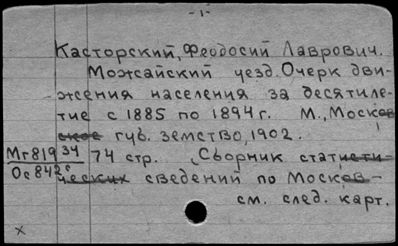 -1-
Касторский, Феодосий Лаврович.
Можайский уезд. Очерк дви-
жения населения за десятиле-
тие с 1885 по 1894 г. М., Москов
ское губ. земство, 1902.
Мг819 34 74 стр. „Сборник статисти-
Ос842с ческих сведений по Москов-
см. след. карт.
x